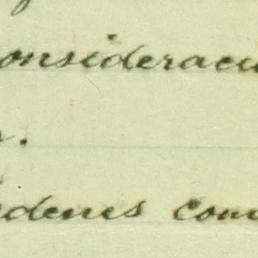 onsideraci
.
rdenes com